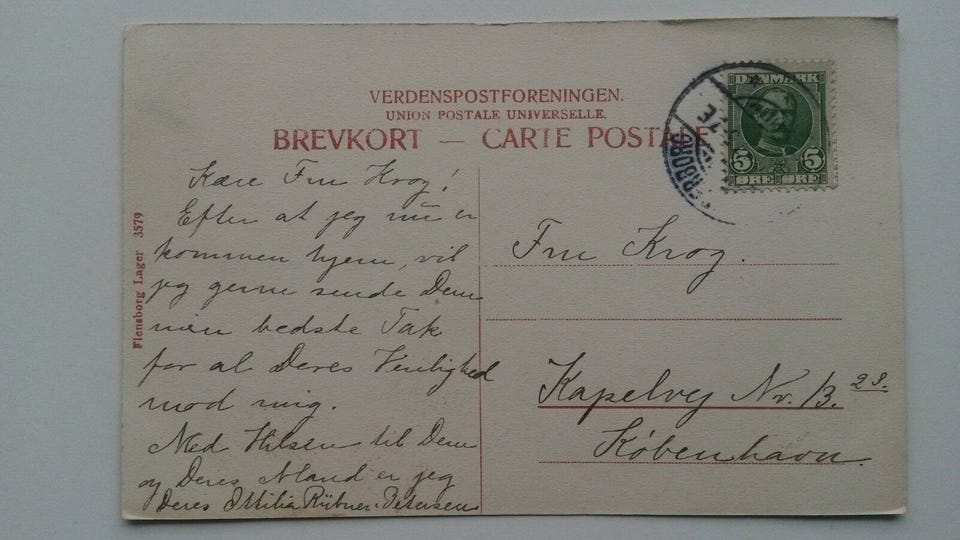 VERDENSPOSTFORENINGEN.
UNION POSTALE UNIVERSELLE.
BREVKORT — CARTE POSTALE
DANMARK
5 5
ØRE ØRE
Flensborg Lager 3579
Kære Fru Krog!
Efter at jeg nu er
kommen hjem, vil
jeg gerne sende Dem
min bedste Tak
for al Deres Venlighed
mod mig.
Med Hilsen til Dem
og Deres Mand er jeg
Deres Ottilia Rübner-Petersen
Fru Krog.
Kapelvej Nr. 13. 2 S.
København.